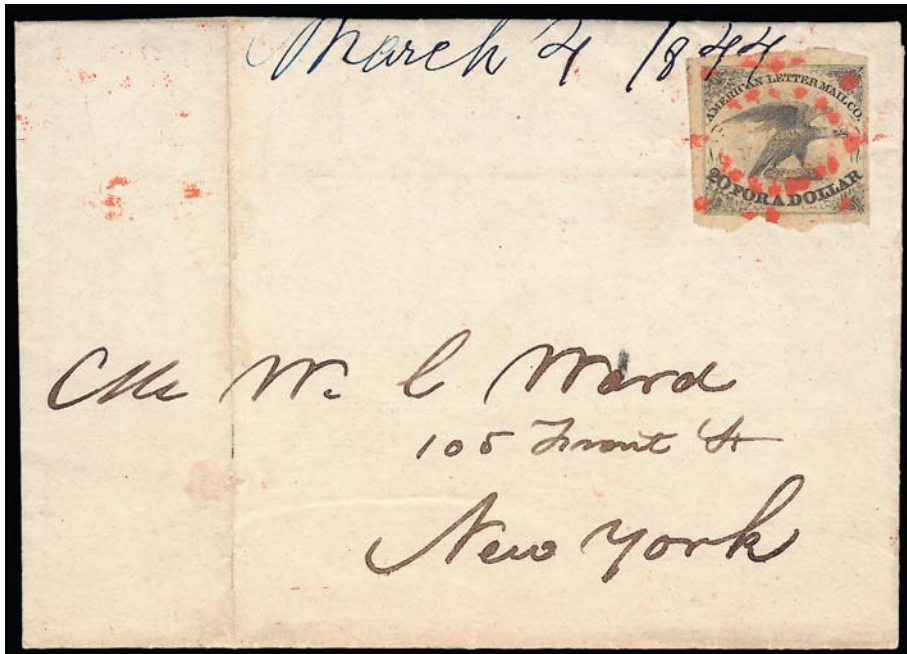 March 4 1844
AMERICAN LETTER MAIL CO.
20 FOR A DOLLAR
Mr W. C Ward
105 Front St
New York